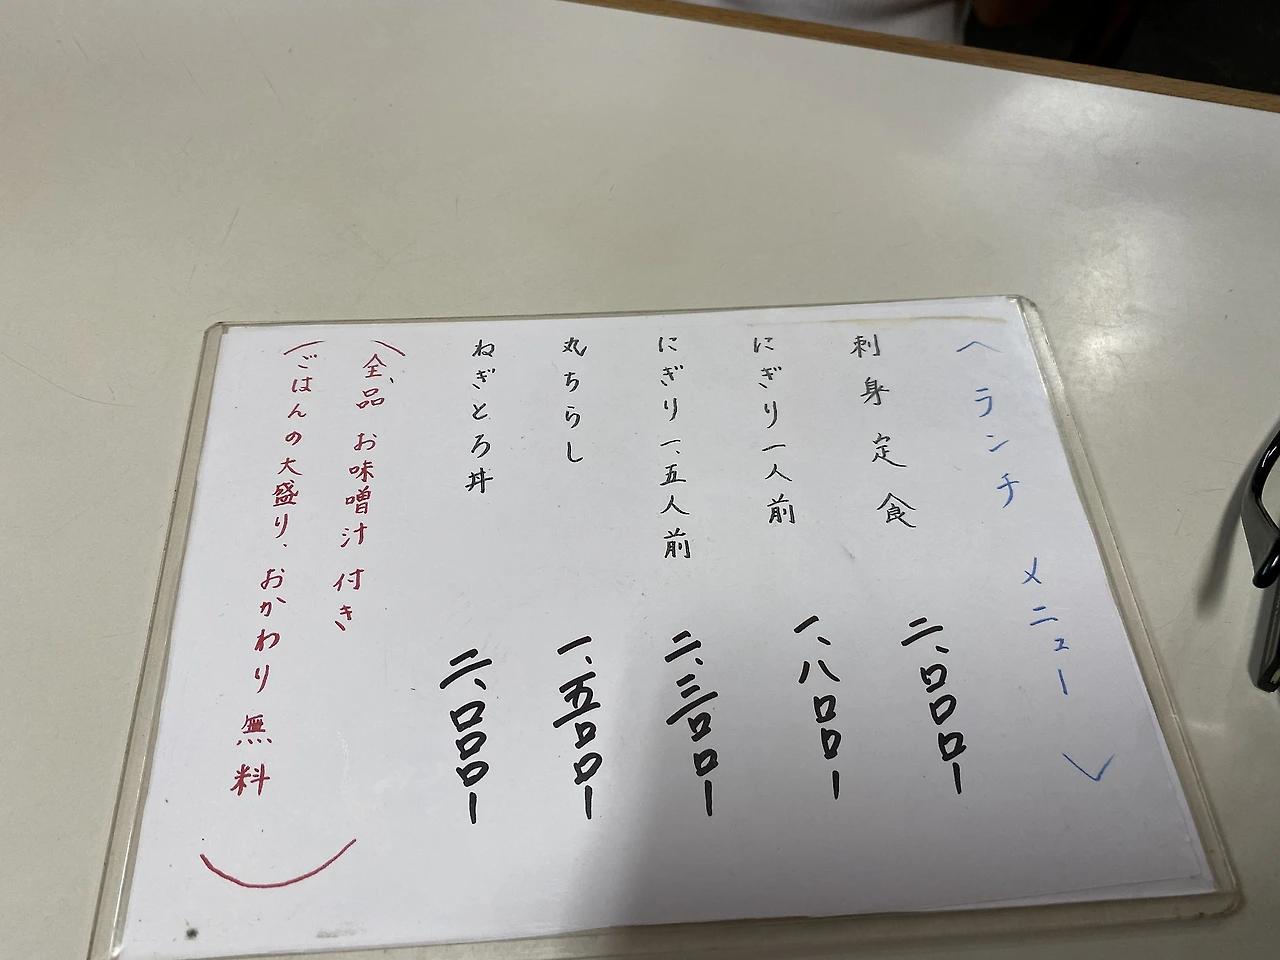 〈ランチ メニュー〉
刺身定食 二、〇〇〇ー
にぎり一人前 一、八〇〇ー
にぎり一、五人前 二、三〇〇ー
丸ちらし 一、五〇〇ー
ねぎとろ丼 二、〇〇〇ー
(全品 お味噌汁付き
ごはんの大盛り、おかわり無料)